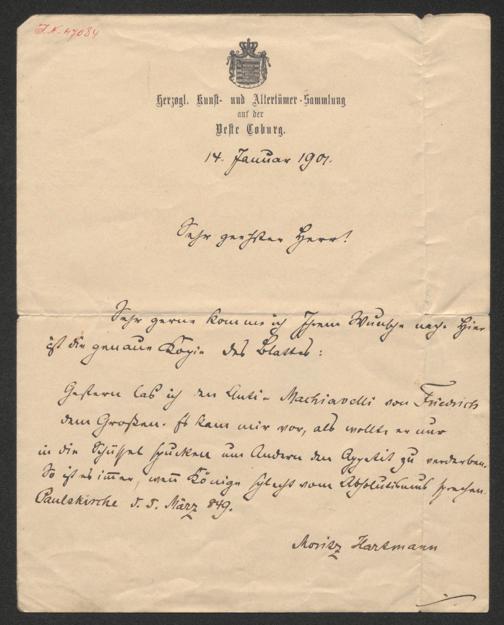 J.N. 47084
Herzogl. Kunst- und Altertümer-Sammlung
auf der
Veste Coburg.
14. Januar 1901.
Sehr geehrter Herr!
Sehr gerne komme ich Ihrem Wunsche nach. Hier
ist die genaue Kopie des Blattes:
Gestern las ich den Anti-Machiavelli von Friedrich
dem Großen. Es kam mir vor, als wollte er nur
in die Schüssel spucken um Andern den Appetit zu verderben.
So ist es immer, wenn Könige schlecht vom Absolutismus sprechen.
Paulskirche d. 5. März 849.
Moritz Hartmann